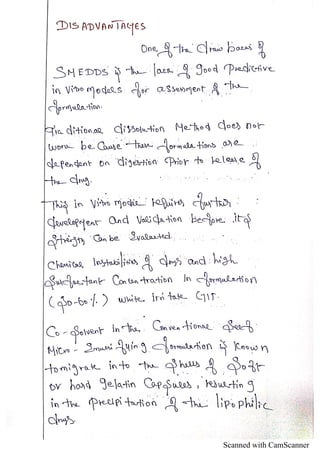 DISADVANTAGES
One of the draw backs of
SMEDDS is the lack of good Predictive
in vitro models for assessment of the
formulation.
Traditional dissolution Method does not
work because these formulations are
dependent on digestion Prior to release of
the drug.
This in vitro model requires further
development and Validation before its
Strength Can be Evaluated.
Chemical Instabilities of drugs and high
Surfactant Concentration In formulation
(30-60%) which Irritate GIT.
Co-Solvent In the Conventional Self
Micro-Emulsifying formulation is Known
to migrate into the Shells of Soft
or hard gelatin Capsules, resulting
in the Precipitation of the lipophilic
drugs.
Scanned with CamScanner